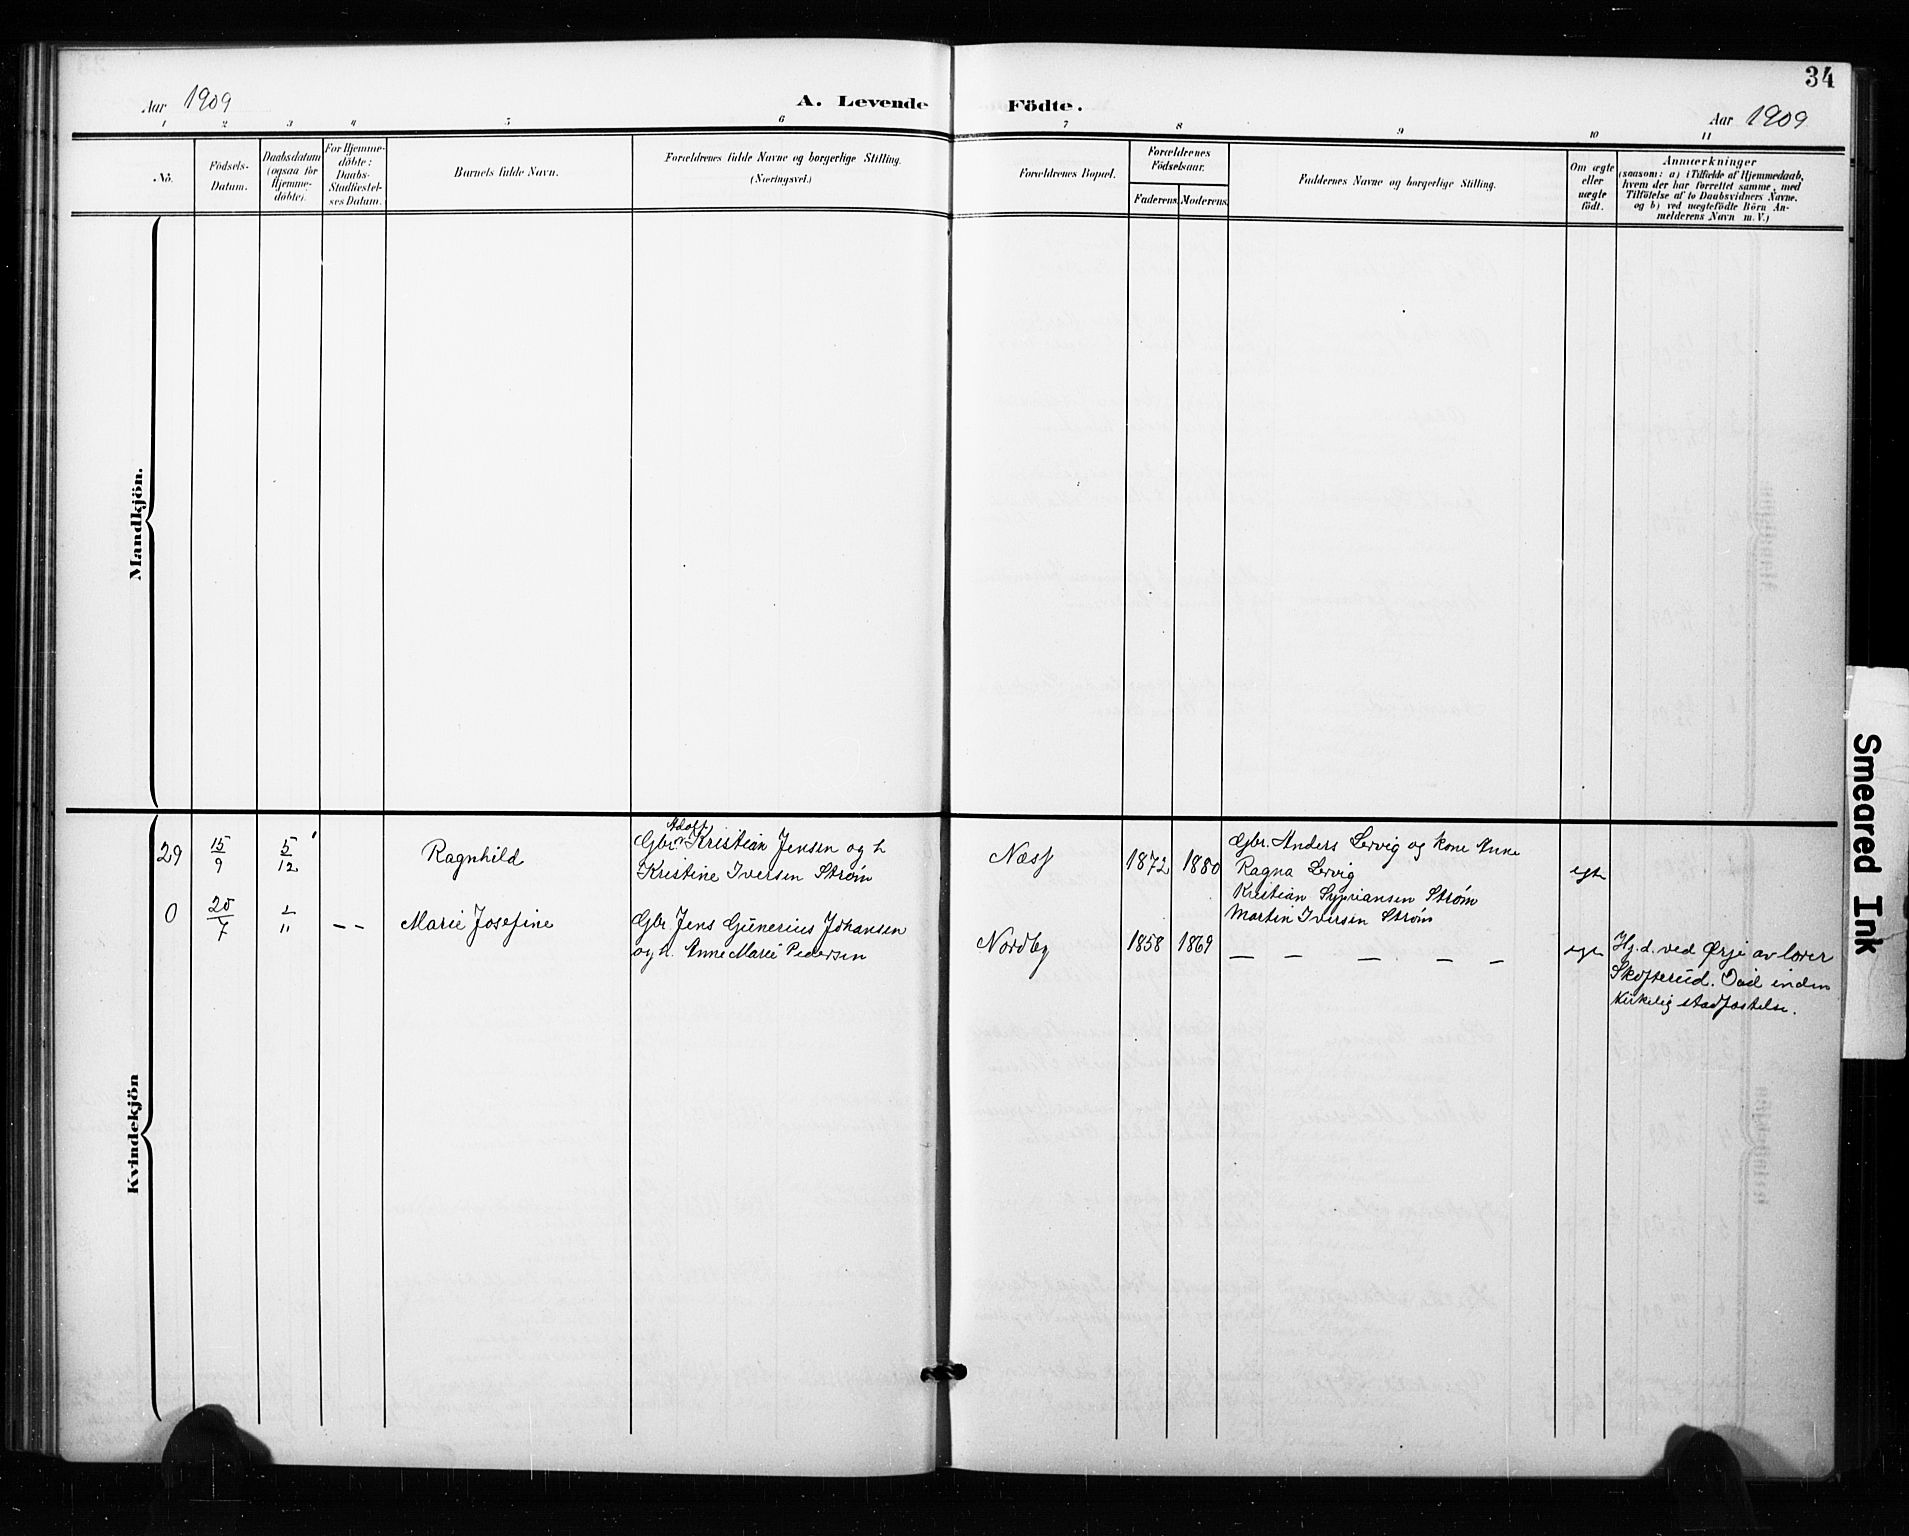 34
Aar 1909
A. Levende Födte.
Aar 1909
1 2 3 4 5 6 7 8 9 10 11
No.
Födsels-
Datum.
Daabsdatum
(ogsaa for
Hjemme-
döbte).
For Hjemme-
döbte:
Daabs-
Stadfæstel-
ses Datum.
Barnets fulde Navn.
Forældrenes fulde Navne og borgerlige Stilling.
(Næringsvei.)
Forældrenes Bopæl.
Forældrenes
Födselsaar.
Faderens. Moderens.
Faddernes Navne og borgerlige Stilling.
Om ægte
eller
uægte
födt.
Anmærkninger
(saasom: a) i Tilfælde af Hjemmedaab,
hvem der har forrettet samme, med
Tilföielse af to Daabsvidners Navne.
og b) ved uægtefödte Börn An-
melderens Navn m. V.)
Mandkjön.
Kvindekjön
29
15/9
5/12
Ragnhild
Adolf
Gbr. Kristian Jensen og h
Kristine Iversen Strøm
Næss
1872
1880
Gbr. Anders Lervig og kone Anne
Ragna Lervig
Kristian Sypriansen Strøm
Martin Iversen Strøm
egte
0
20/7
1/11
— —
Marie Josefine
Gbr. Jens Gunerius Johansen
og h. Anne Marie Pedersen
Nordby
1858
1869
— — — — —
egte
Hj. d. ved Ørje av lærer
Skofterud. Død inden
kirkelig stadfæstelse.
Smeared Ink